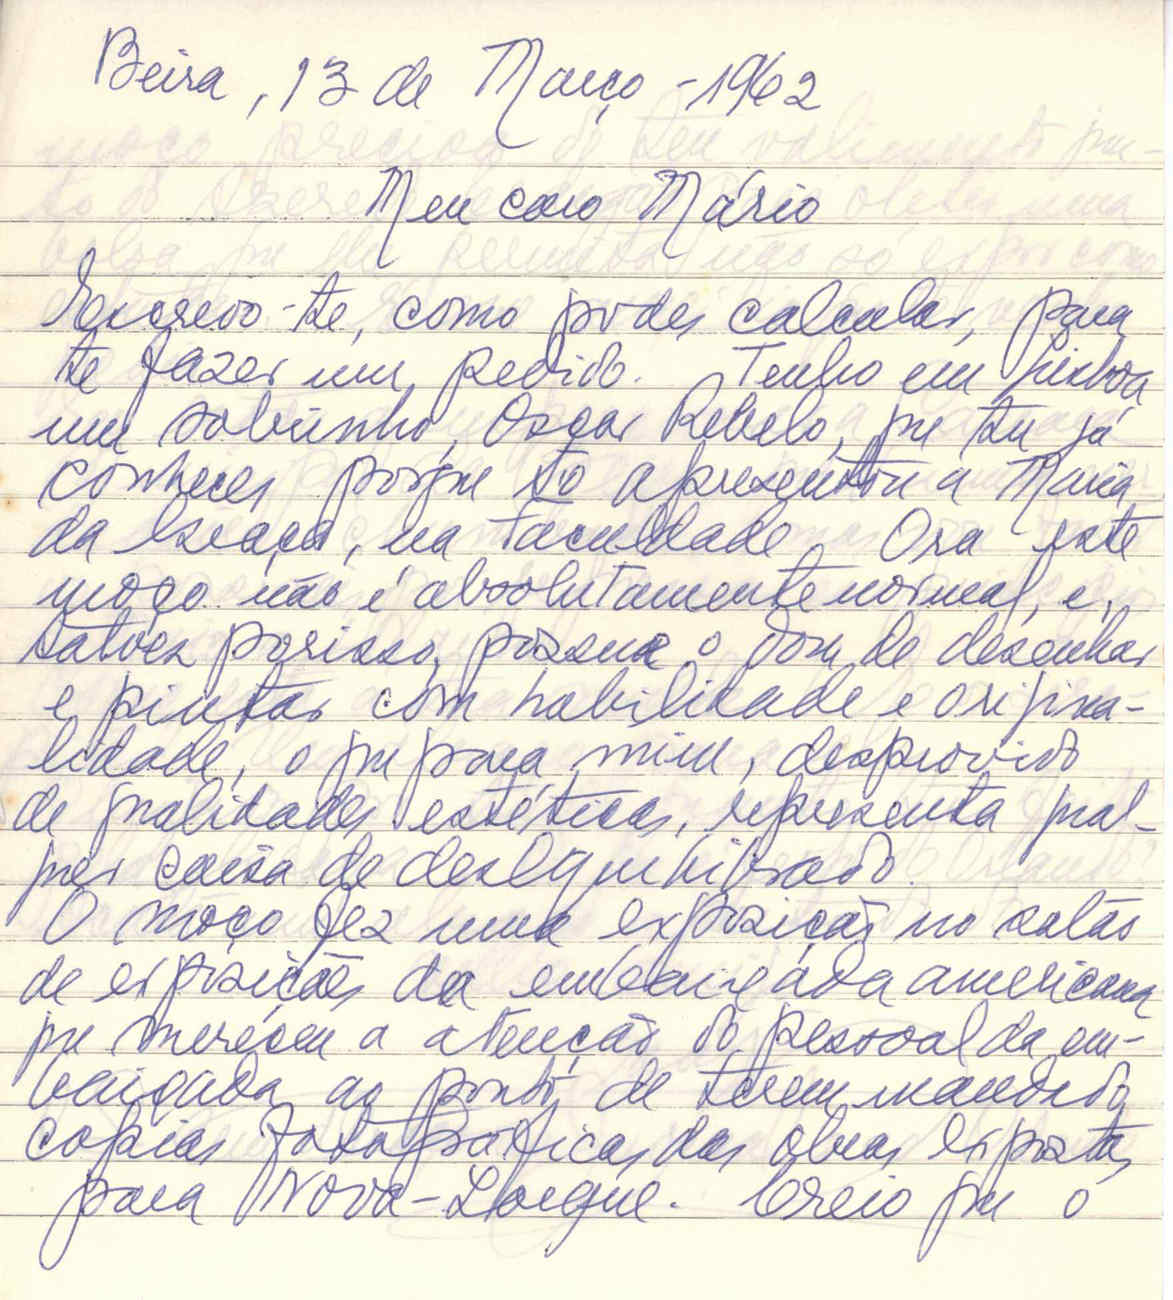 Beira, 13 de Março - 1962
Meu caro Mário
Escrevo-te, como podes calcular, para
te fazer um pedido. Tenho em Lisboa
um sobrinho, Oscar Rebelo, que tu já
conheces porque to apresentou a Maria
da Graça, na Faculdade. Ora este
moço não é absolutamente normal, e,
talvez porisso, possue o dom de desenhar
e pintar com habilidade e origina-
lidade, o que para mim, desprovido
de qualidades estéticas, representa qual-
quer coisa de desequilibrado.
O moço fez uma exposição no salão
de exposições da embaixada americana
que mereceu a atenção do pessoal da em-
baixada ao ponto de terem mandado
copias fotograficas das obras expostas
para Nova-Iorque. Creio que o